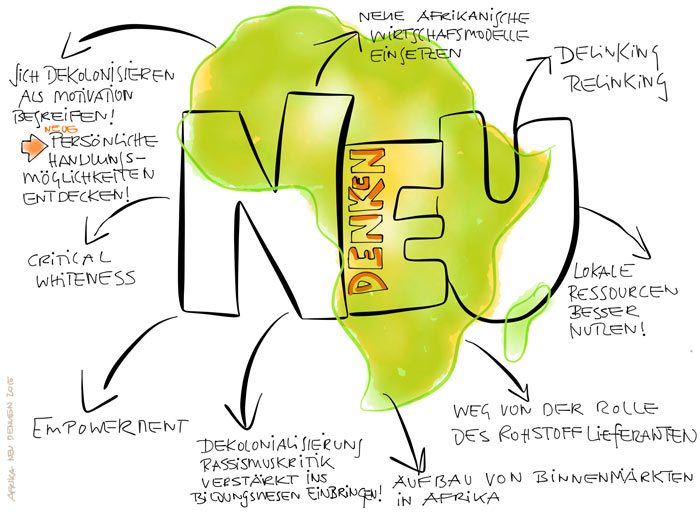 NEUE AFRIKANISCHE
WIRTSCHAFSMODELLE
EINSETZEN
DELINKING
RELINKING
SICH DEKOLONISIEREN
ALS MOTIVATION
BEGREIFEN!
NEUE
PERSÖNLICHE
HANDLUNGS-
MÖGLICHKEITEN
ENTDECKEN!
NEU
DENKEN
CRITICAL
WHITENESS
LOKALE
RESSOURCEN
BESSER
NUTZEN!
EMPOWERMENT
DEKOLONIALISIERUNG
RASSISMUSKRITIK
VERSTÄRKT INS
BILDUNGSWESEN EINBRINGEN!
WEG VON DER ROLLE
DES ROHSTOFFLIEFERANTEN
AUFBAU VON BINNENMÄRKTEN
IN AFRIKA
AFRIKA NEU DENKEN 2015